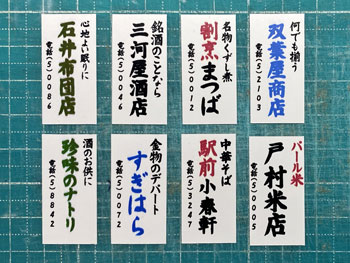 心地よい眠りに
石井布団店
電話(5)0086
銘酒のことなら
三河屋酒店
電話(5)0015
名物くずし煮
割烹まつば
電話(5)0012
何でも揃う
双葉屋商店
電話(5)2103
酒のお供に
珍味のナトリ
電話(5)8842
金物のデパート
すぎはら
電話(5)0072
中華そば
駅前小春軒
電話(5)3247
パール米
戸村米店
電話(5)0005